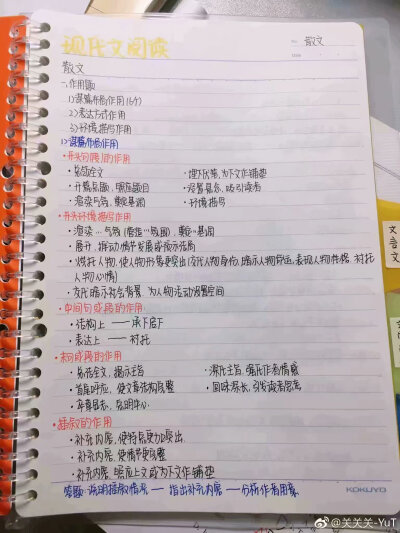 现代文阅读
No. 散文
Date
散文
一、作用题
1)谋篇布局作用(6个)
2)表达方式作用
3)环境描写作用
1>谋篇布局作用
·开头句段的作用
·总领全文 ·埋下伏笔,为下文铺垫
·开篇点题,照应题目 ·设置悬念,吸引读者
·渲染气氛,奠定基调 ·环境描写
·开头环境描写的作用
·渲染…气氛(营造…氛围),奠定…基调
·展开、推动情节发展或预示结局
·烘托人物,使人物形象更突出(交代人物身份,暗示人物命运,表现人物性格,衬托
人物心情)
·交代暗示社会背景,为人物活动设置空间
·中间句或段的作用
·结构上 —— 承上启下
·表达上 —— 衬托
·末句或段的作用
·总结全文,揭示主旨 ·深化主旨,强化作者情感
·首尾呼应,使文章结构完整 ·回味深长,引发读者思考
·卒章显志,点明中心
·插叙的作用
·补充内容,使特点更加突出
·补充内容,使情节更完整
·补充内容,照应上文或为下文作铺垫
答题:说明插叙情况——指出补充内容——分析作者用意
KOKUYO
@关关关-YuT